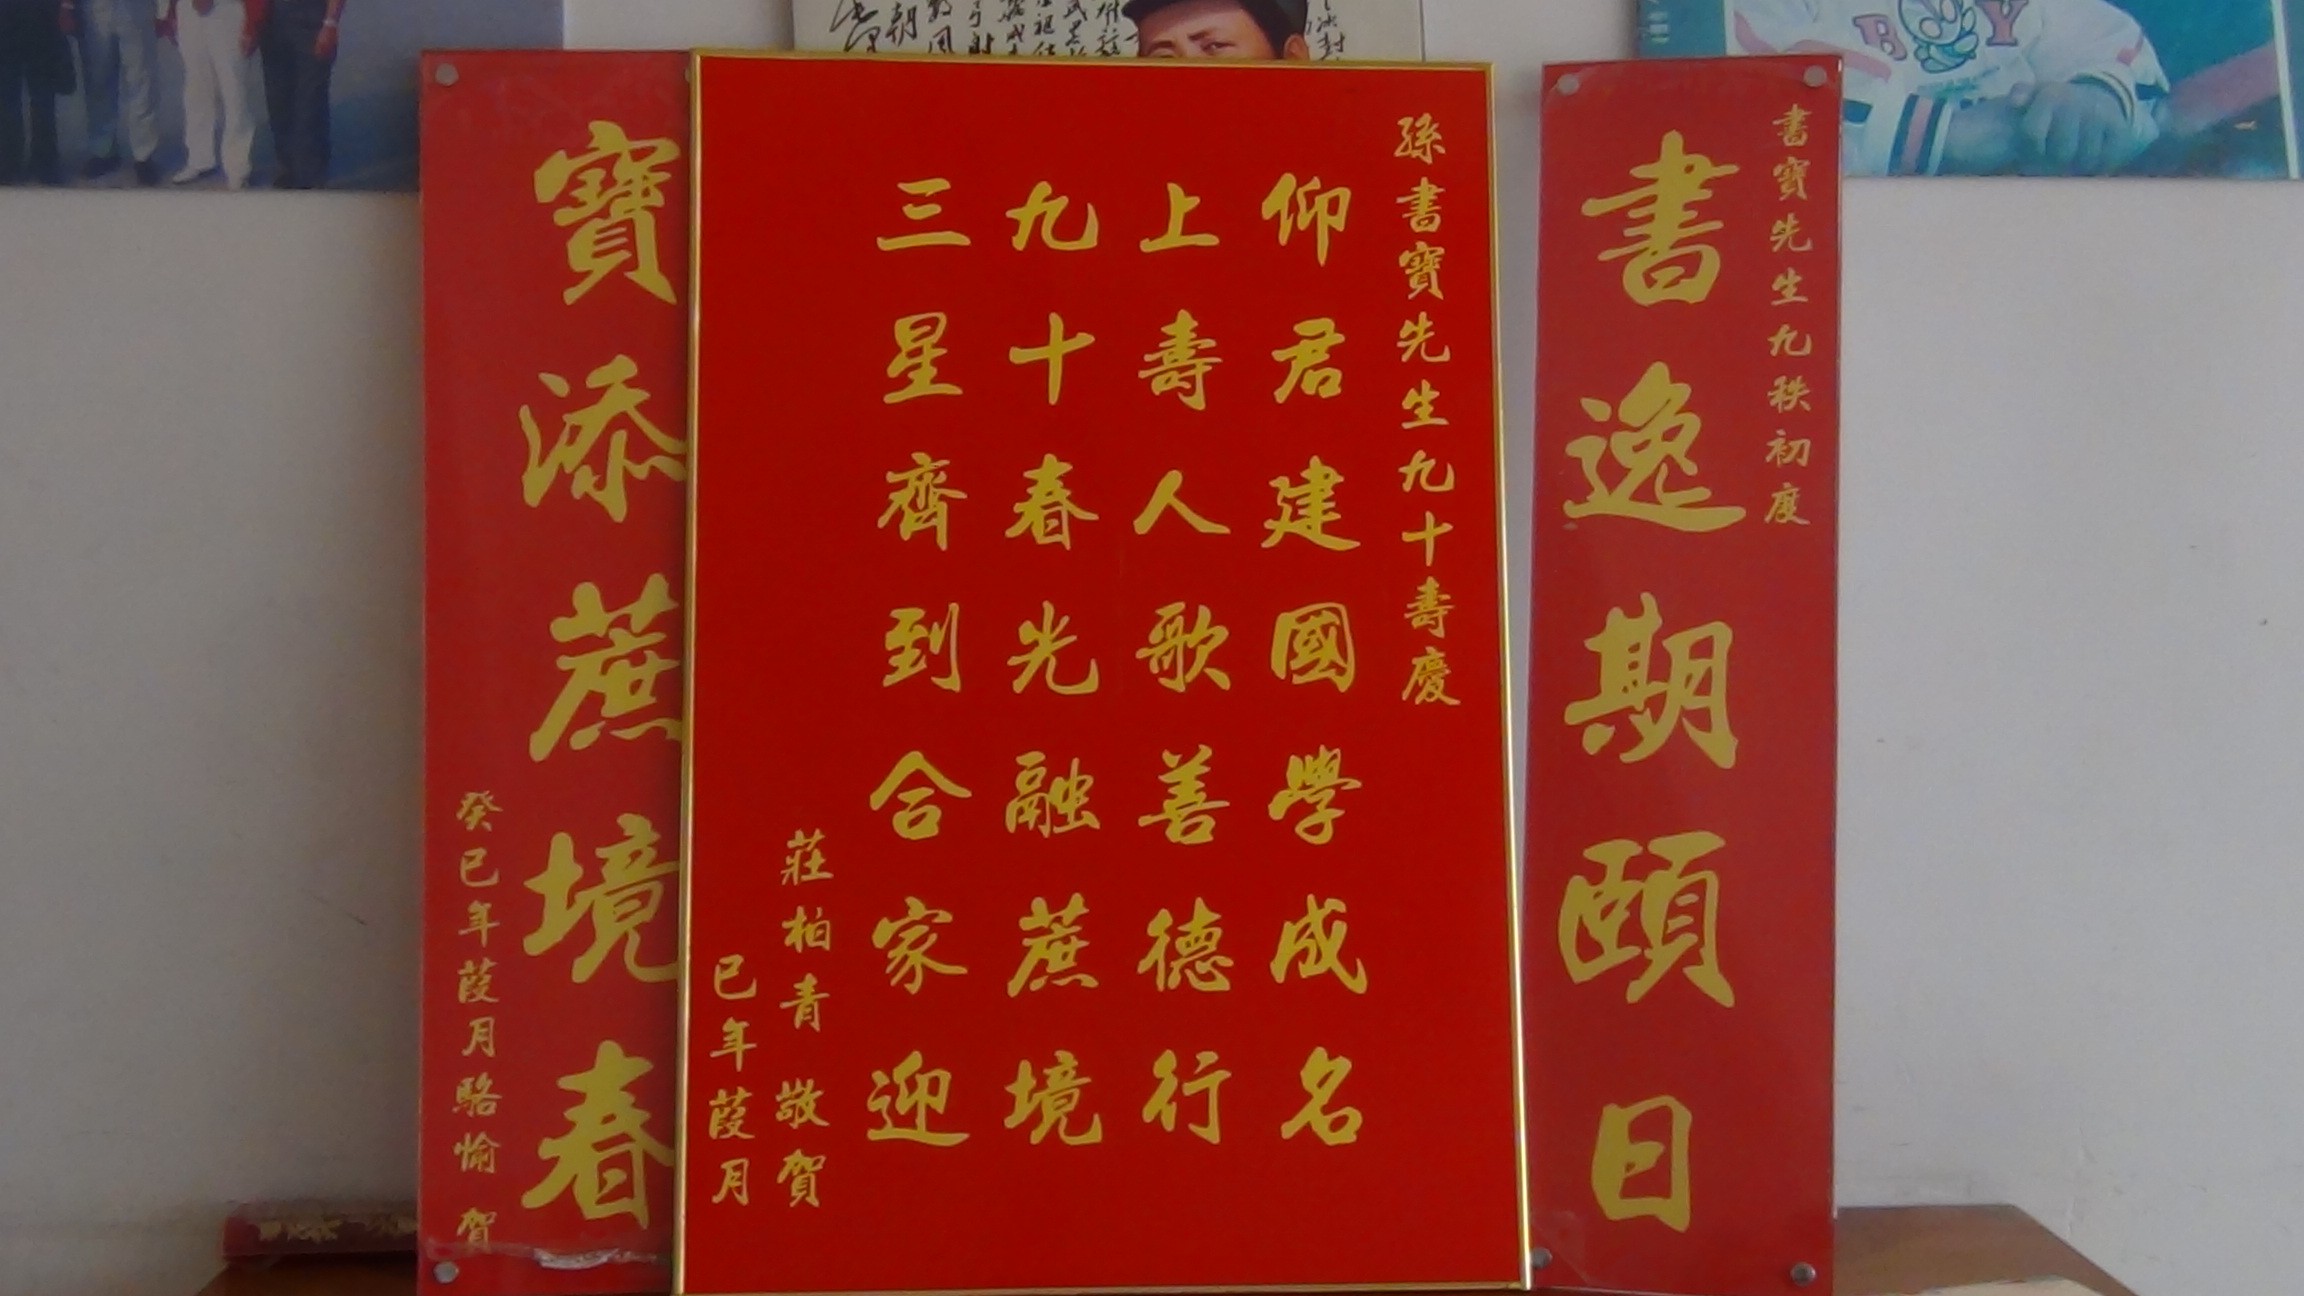 書寶先生九秩初度
書逸期頤日
孫書寶先生九十壽慶
仰君建國學成名
上壽人歌善德行
九十春光融蔗境
三星齊到合家迎
莊柏青敬賀
巳年葭月
寶添蔗境春
癸巳年葭月駱愉賀
B Y